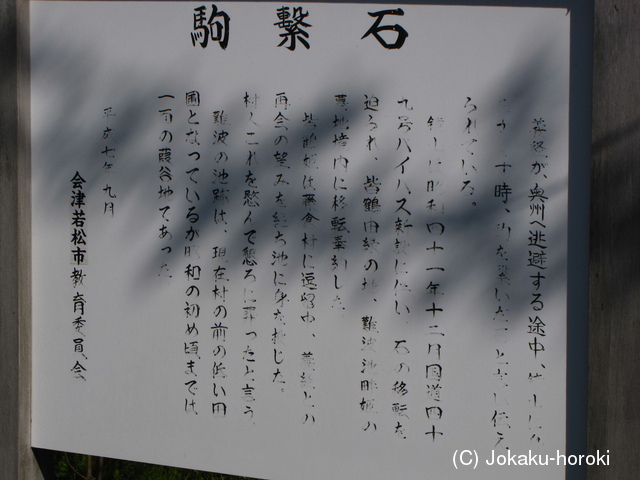 駒繋石
義経が、奥州へ逃避する途中、
時、駒を繋いだ石と言い伝え
られている。
昭和四十一年十二月国道四十
九号バイパス新設に伴い、石の移転を
迫られ、皆鶴姫の、難波池
墓地境内に移転した。
皆鶴姫は藤倉村に逗留中、義経との
再会の望みを絶ち池に身を投じた。
村人これを愍んで懇ろに葬ったと言う。
難波の池跡は、現在村の前の低い田
圃となっているが昭和の初め頃までは、
一面の葭谷地であった。
平成七年九月
会津若松市教育委員会
(C) Jokaku-horoki